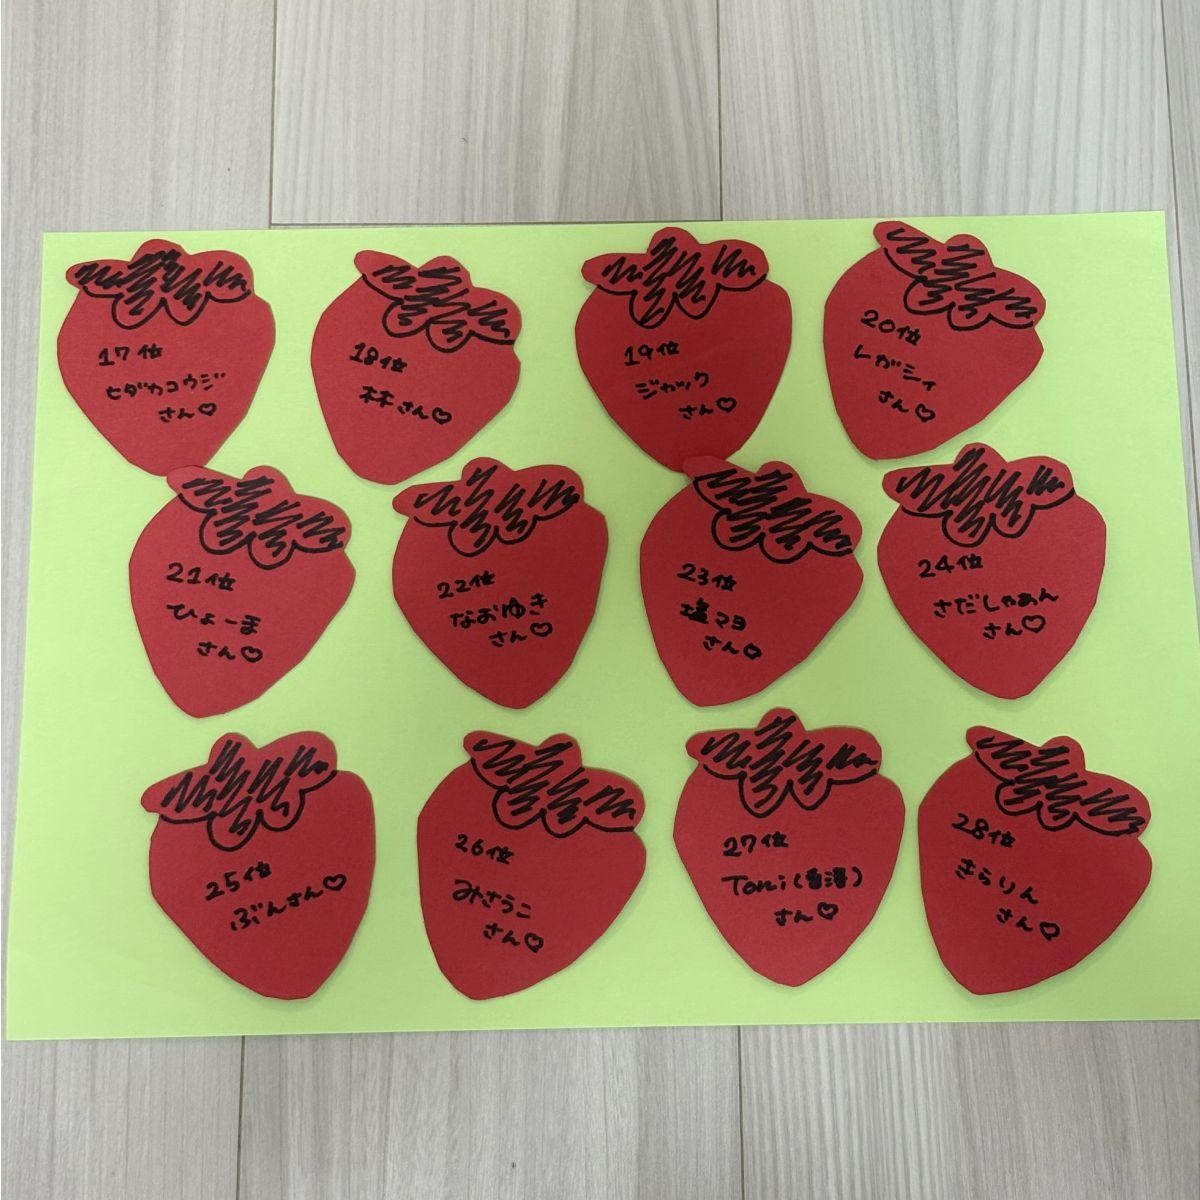 17位
ヒダカコウジ
さん♡
18位
林さん♡
19位
ジャック
さん♡
20位
レガシィ
さん♡
21位
ひょーま
さん♡
22位
なおゆき
さん♡
23位
塩マヨ
さん♡
24位
さだしゃあん
さん♡
25位
ぶんさん♡
26位
みさうこ
さん♡
27位
Toni(香港)
さん♡
28位
きらりん
さん♡